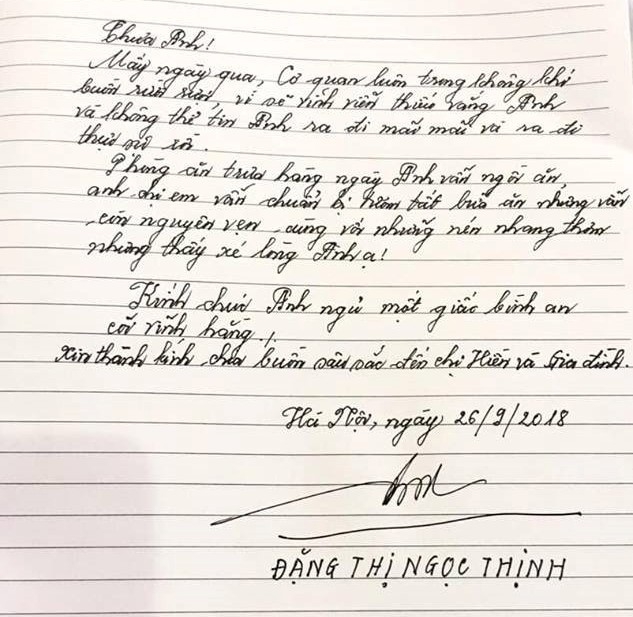 Thưa Anh!
Mấy ngày qua, Cơ quan luôn trong không khí
buồn rười rượi, vì sẽ vĩnh viễn thiếu vắng Anh
và không thể tin Anh ra đi mãi mãi và ra đi
thật sự rồi.
Phòng ăn trưa hàng ngày Anh vẫn ngồi ăn,
anh chị em vẫn chuẩn bị tươm tất bữa ăn nhưng vẫn
còn nguyên vẹn cùng với những nén nhang thơm
nhưng thấy xé lòng Anh ạ!
Kính chúc Anh ngủ một giấc bình an
cõi vĩnh hằng!
Xin thành kính chia buồn sâu sắc đến chị Hiền và Gia đình.
Hà Nội, ngày 26/9/2018
ĐẶNG THỊ NGỌC THỊNH